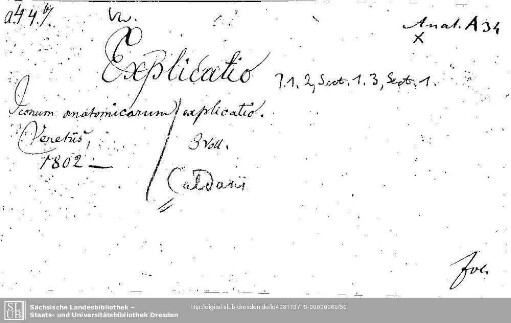 Anat. A 34
X
Explicatio
T. 1. 2, Sect. 1. 3, Sect. 1.
Iconum anatomicarum explicatio.
Venetiis,
3 voll.
1802 —
Caldanii
fol.
SLUB
Sächsische Landesbibliothek –
Staats- und Universitätsbibliothek Dresden